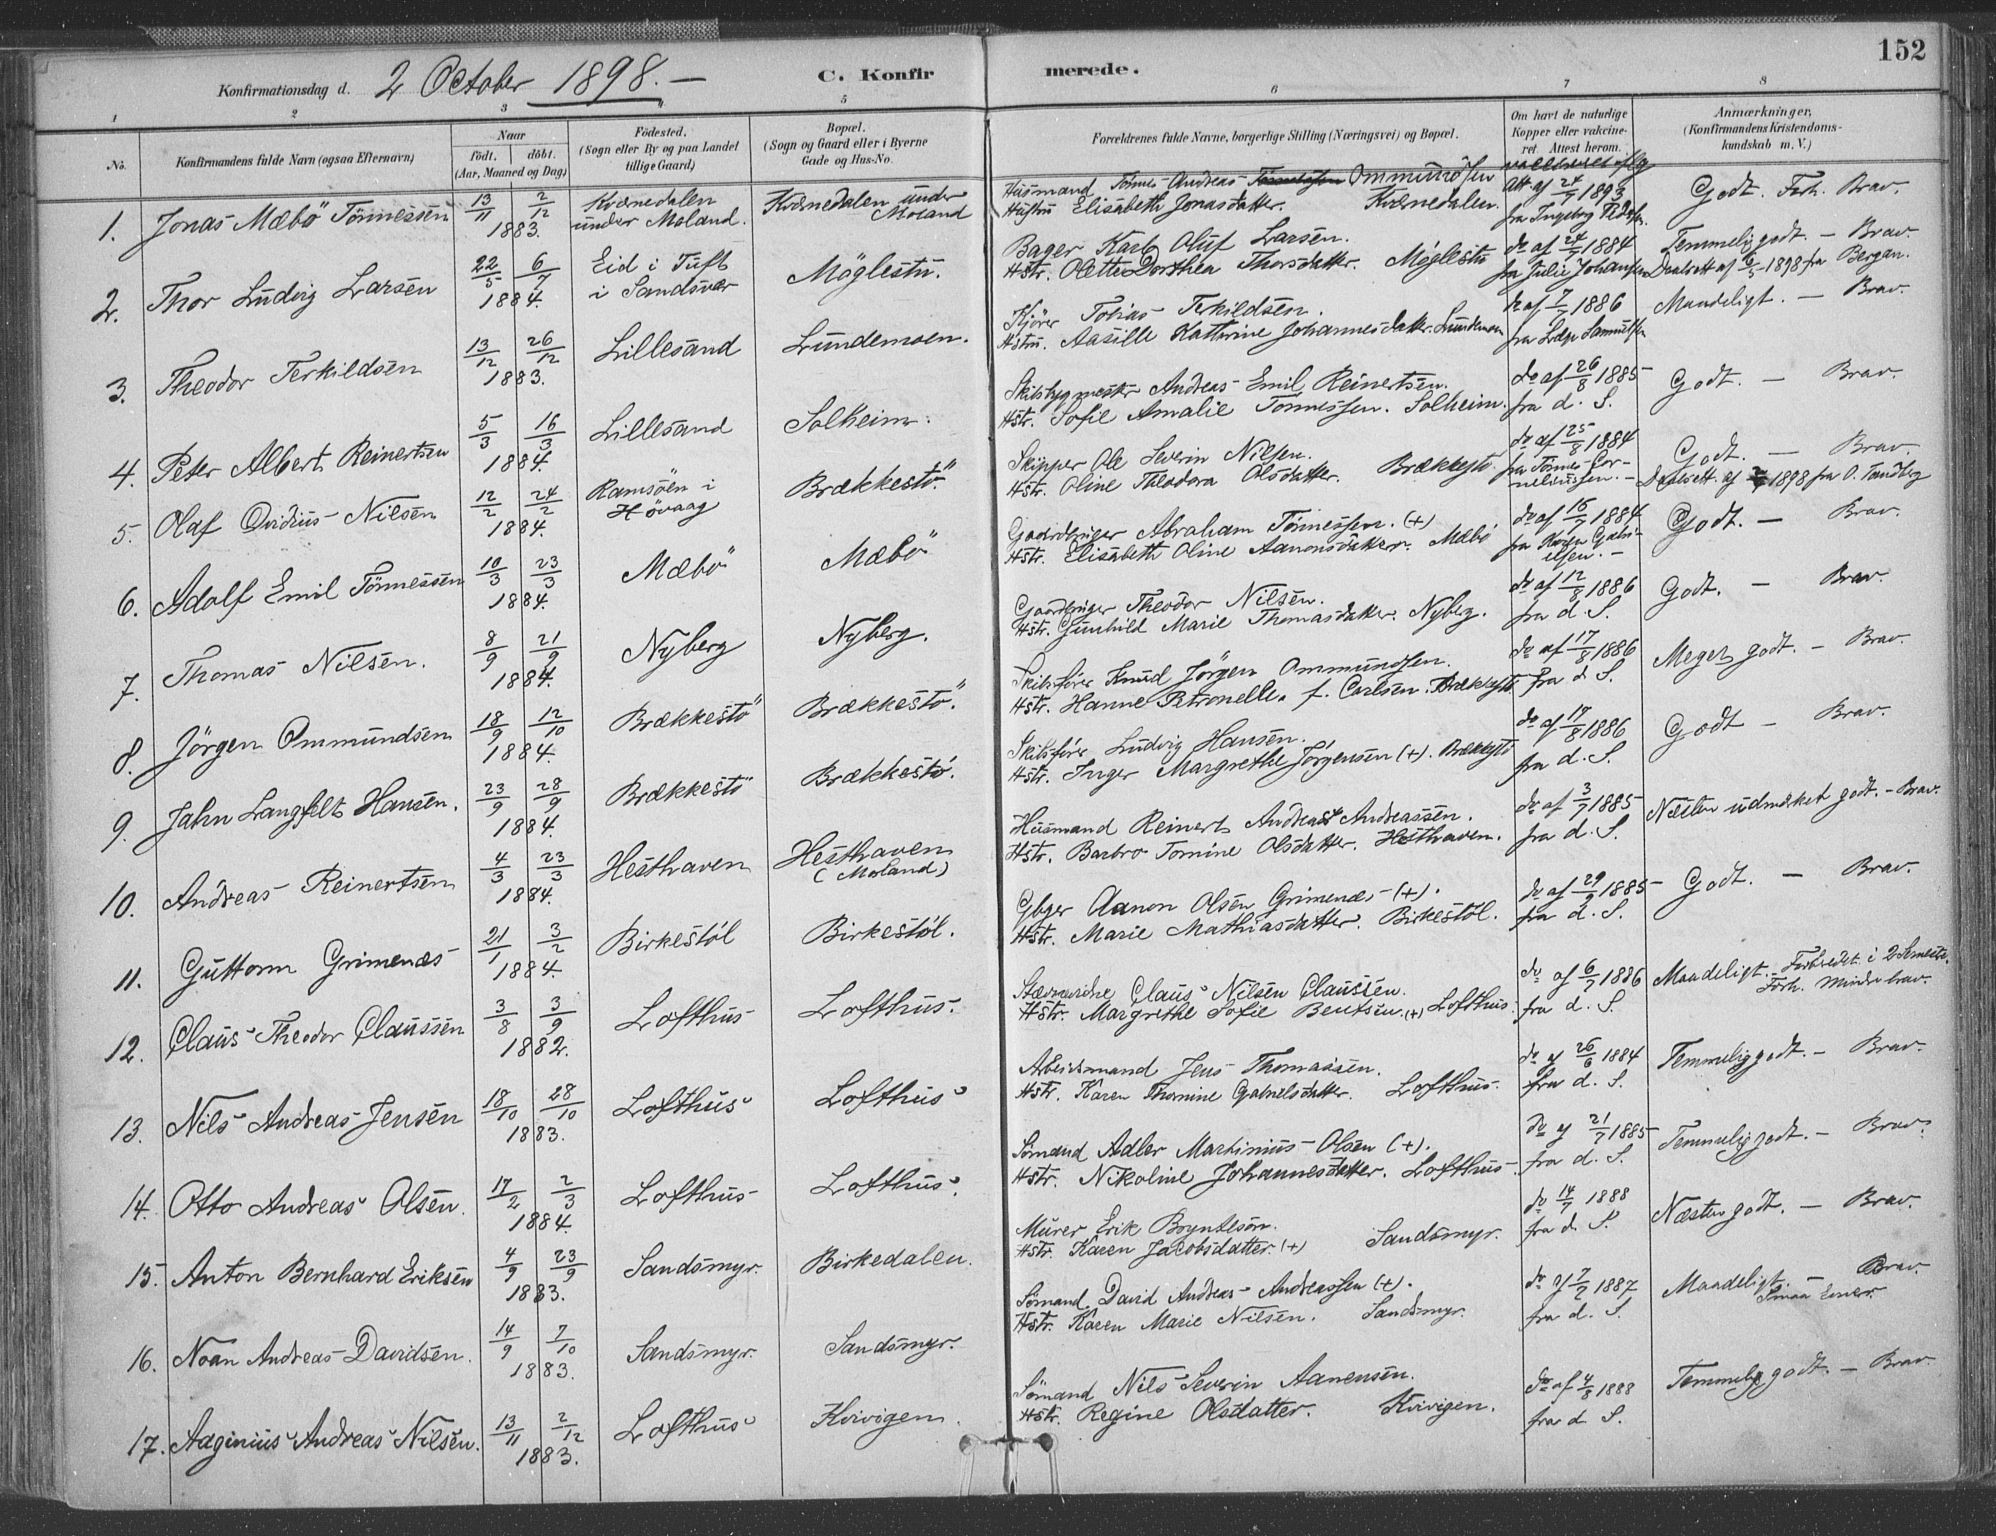 152
Konfirmationsdag d. 2 October 1898. —
C. Konfirmerede.
1 2 3 5 6 7 8
No.
Konfirmandens fulde Navn (ogsaa Efternavn)
Naar
födt. döbt.
(Aar, Maaned og Dag)
Födested.
(Sogn eller By og paa Landet
tillige Gaard)
Bopæl.
(Sogn og Gaard eller i Byerne
Gade og Hus-No.
Forældrenes fulde Navne, borgerlige Stilling (Næringsvei) og Bopæl.
Om havt de naturlige
Kopper eller vakcine-
ret. Attest herom.
Anmærkninger,
(Konfirmandens Kristendoms-
kundskab m. V.)
1. Jonas Mæbö Tönnessen 13/11 2/12 1883. Kvænedalen
under Moland. Kvænedalen under
Moland
Husmand Tönnes Andreas Ommundsen
Hustru Elisabeth Jonasdatter. Kvænedalen.
Att. af 24/7 1893
fra Ingeborg
Godt. Forh. Brav.
2. Thor Ludvig Larsen 22/5 6/7 1884. Eid i Tuft
i Sandsvær Möglestu.
Bager Karl Oluf Larsen.
Hstr. Olette Dorthea Thorsdatter. Möglestu
do af 24/7 1884
fra Julie Johansen
Temmelig godt. — Brav.
1898 fra Bergan.
3. Theodor Terkildsen 13/12 26/12 1883. Lillesand Lundemoen.
Kjörer Tobias Terkildsen.
Hstru. Aasille Kathrine Johannesdatter. Lundemoen
do af 7/7 1886
Maadeligt. — Brav.
4. Peter Albert Reinertsen 5/3 16/3 1884. Lillesand Solheim.
Skibsbygmester Andreas Emil Reinertsen.
Hstr. Sofie Amalie Tönnessen. Solheim.
do af 26/8 1885
fra d. S.
Godt. — Brav.
5. Olaf Ovidius Nilsen 12/2 24/2 1884. Ramsöen i
Hövaag Brækkestö.
Skipper Ole Severin Nilsen.
Hstr. Oline Theodora Olsdatter. Brækkestö
do af 25/8 1884
fra Tönnes Cor-
neliussen. —
Godt. — Brav.
1898 fra O. Tandberg
6. Adolf Emil Tönnessen 10/3 23/3 1884. Mæbö Mæbö
Gaardbruger Abraham Tönnessen. (+)
Hstr. Elisabeth Oline Aanonsdatter. Mæbö
do af 15/7 1884
Godt. — Brav.
7. Thomas Nilsen. 8/9 21/9 1884. Nyberg Nyberg.
Gaardbruger Theodor Nilsen.
Hstr. Gunhild Marie Thomasdatter. Nyberg.
do af 12/8 1886
fra d. S.
Godt. — Brav.
8. Jörgen Ommundsen 18/9 12/10 1884. Brækkestö Brækkestö.
Skibsförer Knud Jörgen Ommundsen.
Hstr. Hanne Petronelle. f. Carlsen. Brækkestö
do af 17/8 1886
fra d. S.
Meget godt. — Brav.
9. Jahn Langfelt Hansen. 23/9 28/9 1884. Brækkestö Brækkestö.
Skibsförer Ludvig Hansen.
Hstr. Inger Margrethe Jörgensen (+). Brækkestö
do af 17/8 1886
fra d. S.
Godt — Brav.
10. Andreas Reinertsen 4/3 23/3 1884. Hesthaven Hesthaven
(Moland)
Husmand Reinert Andreas Andreassen.
Hstr. Barbro Tomine Olsdatter. Hesthaven.
do af 3/7 1885
fra d. S.
Næsten udmærket godt. — Brav.
11. Guttorm Grimenæs 21/1 3/2 1884. Birkestöl Birkestöl.
Gbger Aanon Olsen Grimenæs (+).
Hstr. Marie Mathiasdatter. Birkestöl.
do af 29/9 1885
fra d. S.
Godt. — Brav.
12. Claus Theodor Claussen 3/8 3/9 1882. Lofthus Lofthus.
Claus Nilsen Claussen.
Hstr. Margrethe Sofie Bentsen. (+) Lofthus.
do af 6/7 1886
fra d. S.
Maadeligt. Forberedt i 2 Semestre.
Forh. Mindre brav.
13. Nils Andreas Jensen 18/10 28/10 1883. Lofthus Lofthus
Arbeidsmand Jens Thomassen.
Hstr. Karen Thomine Gabrielsdatter. Lofthus.
do af 26/6 1884
fra d. S.
Temmelig godt. — Brav.
14. Otto Andreas Olsen. 17/2 2/3 1884. Lofthus Lofthus.
Sömand Adler Martinius Olsen (+).
Hstr. Nikoline Johannesdatter. Lofthus.
do af 21/7 1885
fra d. S.
Temmelig godt. — Brav.
15. Anton Bernhard Eriksen 4/9 23/9 1883. Sandsmyr. Birkedalen.
Murer Erik Bryntesön.
Hstr. Karen Jacobsdatter. (+) Sandsmyr.
do 14/7 1888
fra d. S.
Næsten godt. — Brav.
16. Noan Andreas Davidsen. 14/9 7/10 1883. Sandsmyr. Sandsmyr.
Sömand David Andreas Andreassen (+).
Hstr. Karen Marie Nilsen. Sandsmyr.
do af 7/7 1887
fra d. S.
Maadeligt. — Brav.
Smaa Evner.
17. Aaginius Andreas Nilsen. 13/11 2/12 1883. Lofthus Kvivigen.
Sömand Nils Severin Aanensen.
Hstr. Regine Olsdatter. Kvivigen.
do af 4/8 1888
fra d. S.
Temmelig godt. — Brav.